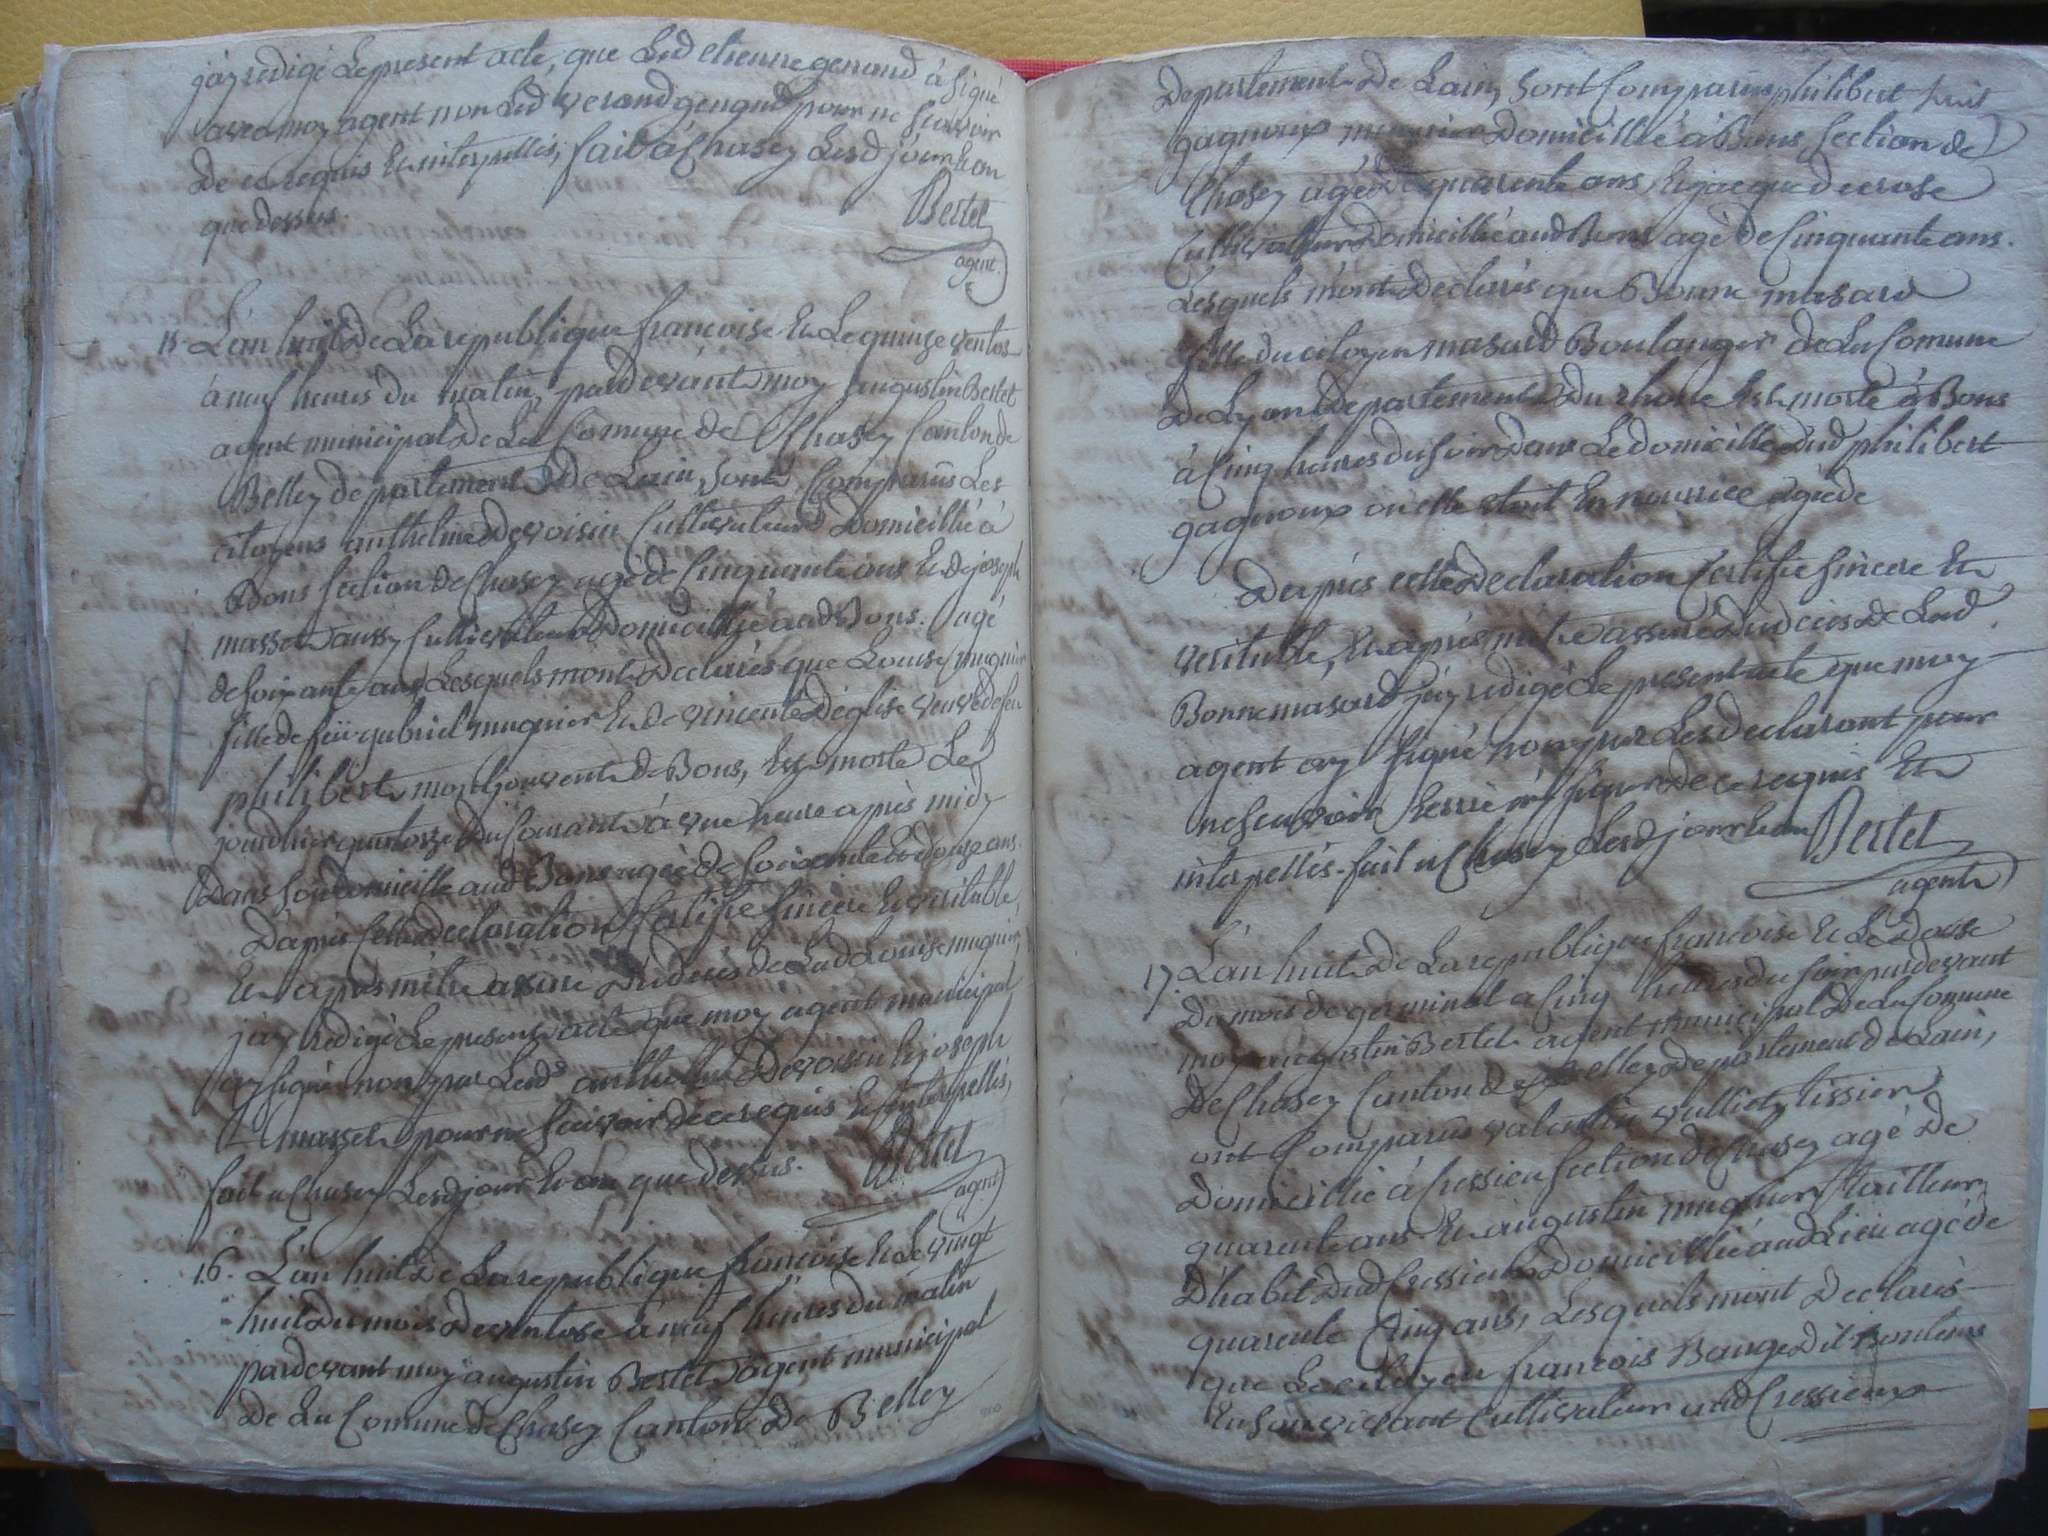 j'ay redigé le present acte, que led etienne genand à signé
avec moy agent non led verand genand pour ne scavoir
de ce requis et interpellés, fait à Chasey lesd jour et an
que dessus.
Bertet
agent
15. L'an huit de la republique francoise et le quinze ventos
à neuf heures du matin, pardevant moy augustin Bertet
agent municipal de la Comune de Chasey Canton de
Belley departement de Lain, sont Comparus les
citoyens anthelme Devoisin Cultivateur Domicillié à
Bons section de Chasey agé de Cinquante ans et de joseph
masset aussy Cultivateur Domicillié aud Bons. agé
de soixante ans lesquels mont declarés que Louise mugnier
fille de feü gabriel mugnier et de vincente Deglise veuve de feu
philibert de Bons, est morte le
jourdhier quatorze du Courant à une heure après midy
dans son domicille aud Bons agée de soixante et douze ans.
D'après cette declaration Certifié sincere et veritable
et après mêtre assuré du deces de lad Louise mugnier,
j'ay redigé le present acte que moy agent municipal
ay signé non pas lesd anthelme Devoisin et joseph
masset pour ne scavoir de ce requis et interpellés,
fait à Chasey lesd jour et an que dessus.
Bertet
agent
16. L'an huit de la republique francoise et le vingt
huit du mois de ventose à neuf heures du matin
pardevant moy augustin Bertet agent municipal
de la Comune de Chasey Canton de Belley
Departement de Lain, sont Comparus philibert
gagnoux Domicillié à Bons, section de
Chasey agé de quarente ans, et jacque decrose
Cultivateur Domicillié aud Bons agé de Cinquante ans.
Lesquels m'ont Declarés que Bonne masard
fille du citoyen masard Boulanger de la Comune
de Lyon departement du rhone est morte à Bons
à Cinq heures du soir dans le domicille dud philibert
gagnoux ou elle etoit en nourrice agée de
D'après cette Declaration Certifié sincere et
veritable, et après mêtre assuré dud deces de lad
Bonne masard j'ay redigé le present acte que moy
agent ay signé non pas les declarant pour
ne scavoir ecrire ni signer de ce requis et
interpellés. fait à Chasey lesd jour et an
Bertet
agent
17. L'an huit de la republique francoise et le douse
du mois de germinal à Cinq heures du soir pardevant
moy augustin Bertet agent municipal de la Comune
de Chasey Canton de Belley departement de Lain,
ont Comparus valentin vulliet tissier
Domicillié à Cressieu section de Chasey agé de
quarente ans et augustin mugnier tailleur
D'habit dud Cressieux Domicillié aud Lieu agé de
quarente Cinq ans, Lesquels mont Declarés
que Le citoyen francois Bauge dit
en son vivant Cultivateur aud Cressieux